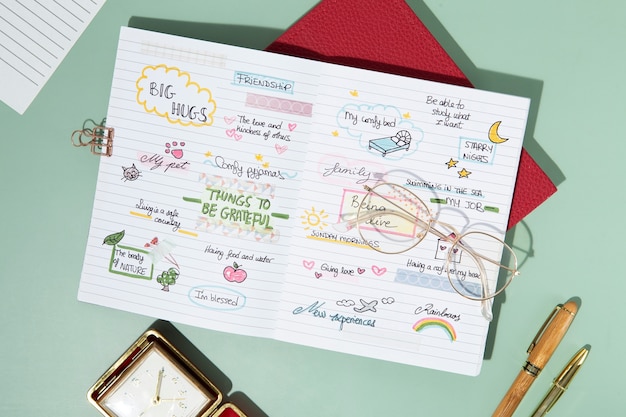 BIG
HUGS
FRIENDSHIP
The love and
kindness of others
My pet
Comfy pyjamas
THINGS TO
BE GRATEFUL
Living in a safe
country
The beauty
of NATURE
Having food and water
I'm blessed
My comfy bed
Be able to
study what
I want
STARRY
NIGHTS
family
SWIMMING IN THE SEA
MY JOB
Being
alive
SUNDAY MORNINGS
Giving love
Having a roof on my
New experiences
Rainbows